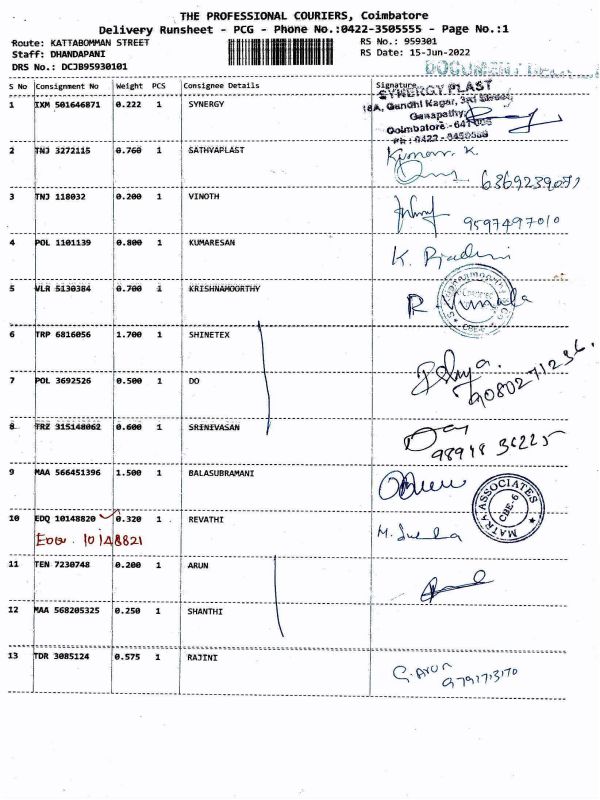 THE PROFESSIONAL COURIERS, Coimbatore
Delivery Runsheet - PCG - Phone No.:0422-3505555 - Page No.:1
Route: KATTABOMMAN STREET RS No.: 959301
Staff: DHANDAPANI RS Date: 15-Jun-2022
DRS No.: DCJB95930101
S No Consignment No Weight PCS Consignee Details Signature
SYNERGY PLAST
18A, Gandhi Nagar, 3rd Street,
Ganapathy,
Coimbatore - 641 006
1 IXM 501646871 0.222 1 SYNERGY
2 TNJ 3272115 0.760 1 SATHYAPLAST Kumar. K
6369239071
3 TNJ 118032 0.200 1 VINOTH
9597497010
4 POL 1101139 0.800 1 KUMARESAN K.
5 VLR 5130384 0.700 1 KRISHNAMOORTHY R. Vimala
6 TRP 6816056 1.700 1 SHINETEX
7 POL 3692526 0.500 1 DO
9080271236
8 TRZ 315148062 0.600 1 SRINIVASAN
98948 36225
9 MAA 566451396 1.500 1 BALASUBRAMANI
MATRA ASSOCIATES
CBE-6
10 EDQ 10148820 0.320 1 REVATHI
10148821
11 TEN 7230748 0.200 1 ARUN
12 MAA 568205325 0.250 1 SHANTHI
13 TDR 3085124 0.575 1 RAJINI G. Arun
9791713170